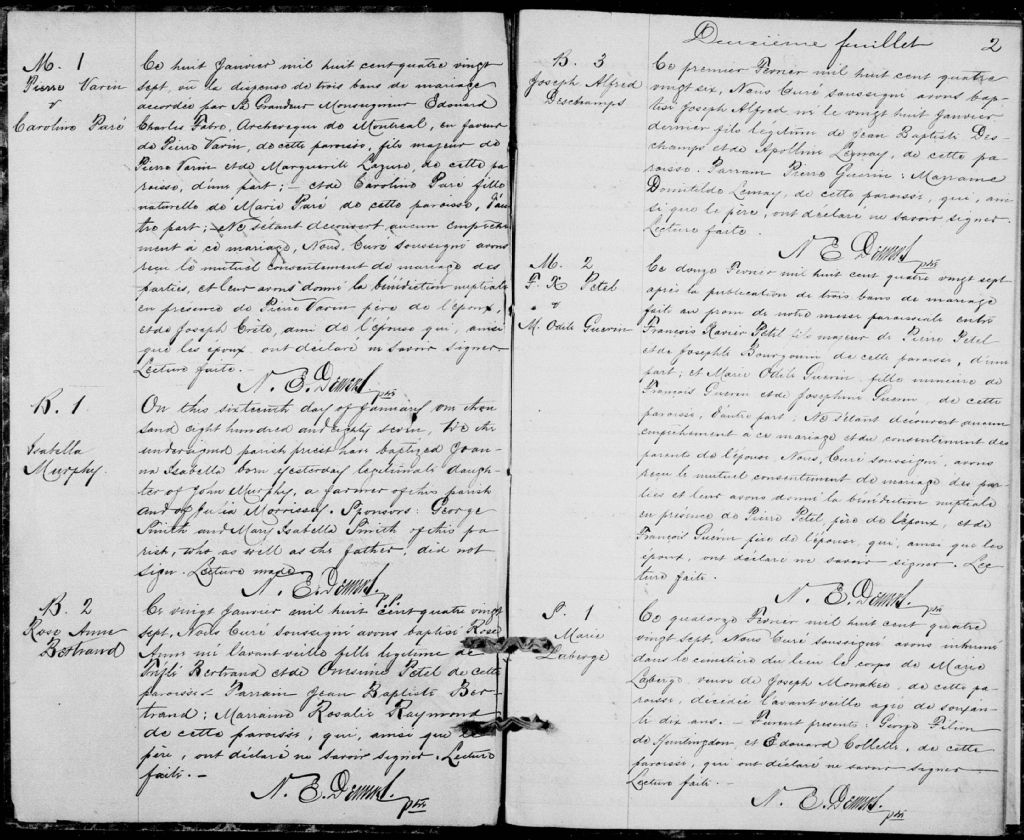 M. 1
Pierre Varin
&
Caroline Paré
Ce huit Janvier mil huit cent quatre vingt
sept, vu la dispense de trois bans de mariage
accordée par Sa Grandeur Monseigneur Edouard
Charles Fabre, Archevêque de Montréal, en faveur
de Pierre Varin, de cette paroisse, fils majeur de
Pierre Varin et de Marguerite Lazure, de cette pa
roisse, d'une part; - et de Caroline Paré fille
naturelle de Marie Paré de cette paroisse, d'au
tre part; Ne s'étant découvert aucun empêche
ment à ce mariage, Nous, Curé soussigné avons
reçu le mutuel consentement de mariage des
parties, et leur avons donné la bénédiction nuptiale
en présence de Pierre Varin père de l'époux,
et de Joseph Crête, ami de l'épouse qui, ainsi
que les époux, ont déclaré ne savoir signer
Lecture faite.
N. E. Demers. ptre
B. 1
Isabella
Murphy.
On this sixteenth day of January one thou
sand eight hundred and eighty seven, We the
undersigned parish priest have baptized Joan
na Isabella born yesterday legitimate daugh
ter of John Murphy, a farmer of this parish
and of Julia Morrissey. Sponsors: George
Smith and Mary Isabella Smith of this pa
rish, who as well as the father, did not
sign. Lecture made
N. E. Demers. P.P.
B. 2
Rose Anna
Bertrand
Ce vingt Janvier mil huit cent quatre vingt
sept, Nous Curé soussigné avons baptisé Rose
Anna née l'avant veille fille légitime de
Bertrand et de Onésime Petel de cette
paroisse - Parrain Jean Baptiste Ber-
trand; Marraine Rosalie Raymond
de cette paroisse, qui, ainsi que le
père, ont déclaré ne savoir signer. Lecture
faite. -
N. E. Demers. ptre
Deuxième feuillet 2
B. 3
Joseph Alfred
Deschamps
Ce premier Février mil huit cent quatre
vingt six, Nous Curé soussigné avons bap-
tisé Joseph Alfred né le vingt huit Janvier
dernier fils légitime de Jean Baptiste Des-
champs et de Apolline Lemay, de cette pa-
roisse. Parrain Pierre Guerin; Marraine
Domitilde Lemay, de cette paroisse, qui, ain-
si que le père, ont déclaré ne savoir signer.
Lecture faite.
N. E. Demers. ptre
M. 2
F. X Petel
&
M. Odile Guerin
Ce douze Fevrier mil huit cent quatre vingt sept
après la publication de trois bans de mariage
faite au prone de notre messe paroissiale entre
François Xavier Petel fils majeur de Pierre Petel
et de Josephte Bourgouin de cette paroisse, d'une
part; et Marie Odile Guerin fille mineure de
François Guerin et de Josephine Guerin, de cette
paroisse, d'autre part; Ne s'étant découvert aucun
empêchement à ce mariage et du consentement des
parents de l'épouse Nous, Curé soussigné, avons
reçu le mutuel consentement de mariage des par-
ties et leur avons donné la bénédiction nuptiale
en présence de Pierre Petel, père de l'époux, et de
François Guérin père de l'épouse, qui, ainsi que les
époux, ont déclaré ne savoir signer. Lec
ture faite.
N. E. Demers. ptre
S. 1
Marie
Laberge
Ce quatorze Février mil huit cent quatre
vingt sept, Nous Curé soussigné avons inhumé
dans le cimetière du lieu le corps de Marie
Laberge, veuve de Joseph Monakee, de cette pa-
roisse, décédée l'avant veille agée de soixan-
te dix ans. - Furent présents: George Filion
de Huntingdon, et Edouard Collette, de cette
paroisse, qui ont déclaré ne savoir signer
Lecture faite. -
N. E. Demers. ptre